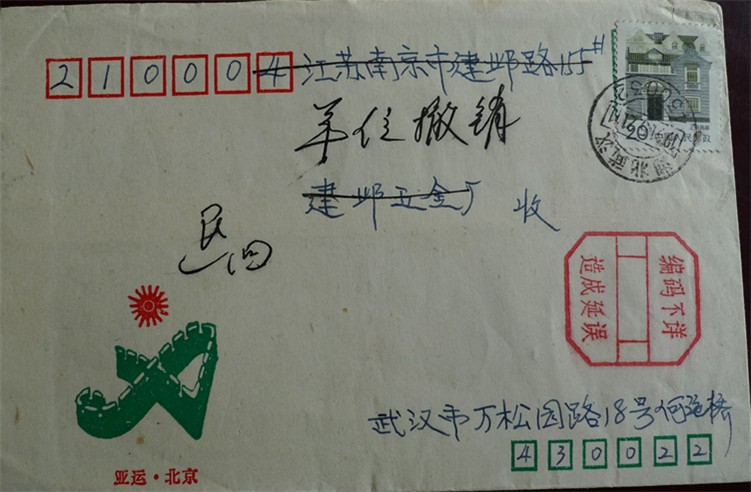 210004 江苏南京市建邺路155#
单位撤销
建邺五金厂 收
退回
编码不详
造成延误
亚运·北京
武汉市万松园路18号何适桥
430022